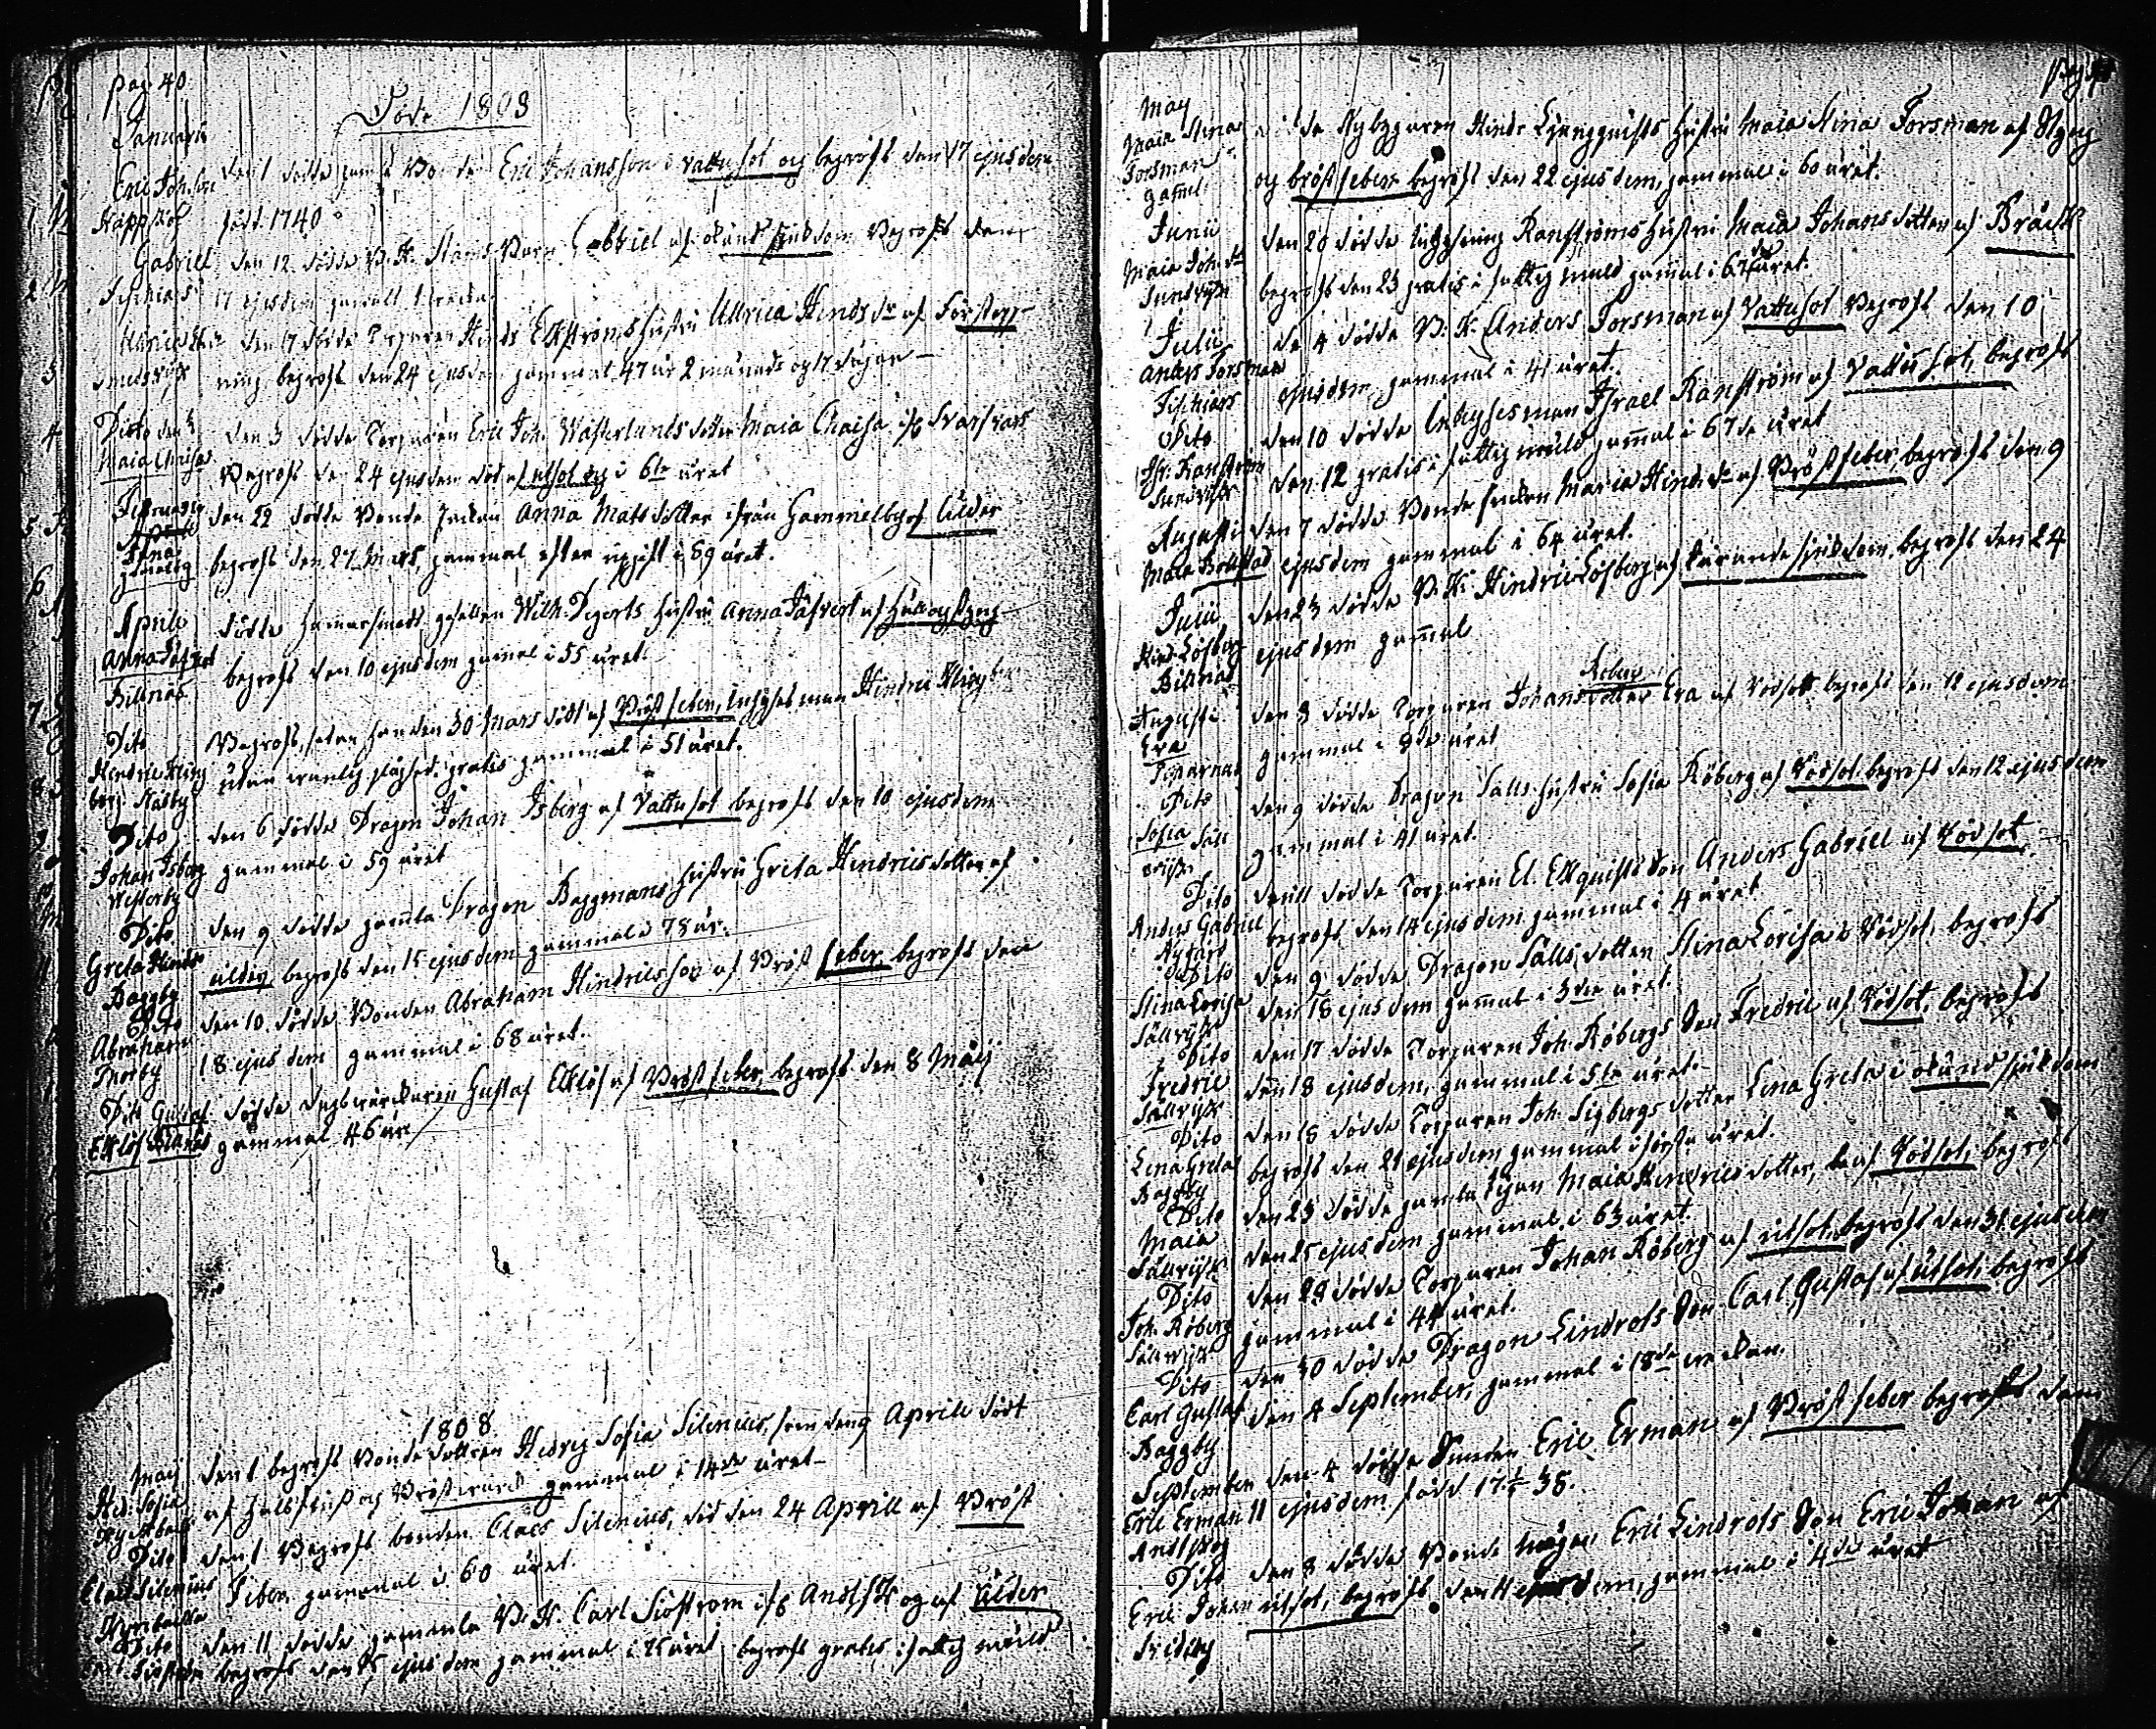 pag 40
Döde 1808
Januarii
Eric Joh.son
Kappskog
den 1 dödde gamla Bonden Eric Johansson i vattusot och begrofs den 17 ejusdem
född 1740
Gabriel
den 12 dödde B. K. Stams Barn Gabriel af okänd siukdom Begrofs den
17 ejusdem gamalt 1 vecka.
Ullrica
den 17 dödde Torparen Hinds Ekströms hustru Ullrica Hinds dr af Förstopp-
ning begrofs den 24 ejusdem gammal 47 år 2 månads og 17 dagar
Dito
Maia Chaisa
den 3 dödde Torparen Eric Joh. Wästerlunds dotter Maia Chaisa
Begrofs den 24 ejusdem död af utsot i 6te året
Februarii
Anna
den 22 dödde Bonde Enkan Anna Matsdotter ifrån Gammelby af Ålder
begrofs den 27 Mars, gammal efter uppgift i 89 året.
Aprill
Anna Jäfvert
Billnäs
dödde hammarsmeds gesällen Wilh. Degerts hustru Anna Jäfvert af Håll og Styng
begrofs den 10 ejusdem gammal i 55 året.
Dito
Hindric Kling
berg Näseby
Begrofs, sedan han den 30 Mars dödt af Bröst feber, Inhyses man Hindric Klingberg
utan vanlig gratis gammal i 51 året.
Dito
Johan Isberg
Westerby
den 6 dödde Dragon Johan Isberg af Vattusot begrofs den 10 ejusdem
gammal i 59 året
Dito
Greta Hinds
Baggby
den 9 dödde gamla Dragon Baggmans hustru Greta Hindricsdotter af
ålder begrofs den 15 ejusdem gammal 78 år.
Dito
Abraham
Thorby
den 10 dödde Bonden Abraham Hindricsson af Bröst feber begrofs den
18 ejusdem gammal i 68 året.
Dito Gustaf
Eklöf
dödde Gustaf Eklöf af Bröst feber begrofs den 8 Maij
gammal 46 år
1808
Maij
Hed: Sofia
den 1 begrofs Bonde dottren Hedvig Sofia Silenius, som den 9 Aprill dödt
af halsfluss og Bröstvärk gammal i 14de året
Dito
Claes Silenius
den 1 Begrofs bonden Claes Silenius, död den 24 Aprill af Bröst
Feber gammal i 60 året.
Dito
Carl Siöström
den 11 dödde gammla B. K. Carl Siöström ifr Andskog af Ålder
begrofs den 15 ejusdem gammal i 75 året begrofs gratis i fattig muld
May
Maia Stina
Forsman
gaml.
dödde Nybyggaren Hindr Ljungquists hustru Maia Stina Forsman af Styng
og bröstfeber begrofs den 22 ejusdem, gammal i 60 året.
Junii
Maia Joh. dr
Sundvijk
den 20 dödde Inhysing Ranströms hustru Maia Johansdotter af Bråck
begrofs den 23 gratis i fattig muld gammal i 67de året.
Julii
Anders Forsman
Fiskiars
de 4 dödde B: K: Anders Forsman af Vattusot Begrofs den 10
ejusdem, gammal i 41 året.
Dito
Isr. Ranström
Sundvijk
den 10 dödde Inhysesman Israel Ranström af Vattusot, begrofs
den 12 gratis i fattig muld gammal i 67de året
Augusti
Maia Bollstad
den 7 dödde Bonde Enkan Maria Hinds dr af Bröstfeber, begrofs den 9
ejusdem gammal i 64 året.
Julii
Hind. Löfberg
Billnäs
den 23 dödde B: K: Hindric Löfberg af tärande siukdom, begrofs den 24
ejusdem gammal
Augusti
Eva
Röberg
den 8 dödde Torparen Johans dotter Eva af Rödsot begrofs den 12 ejusdem
gammal i 8de året
Dito
Sofia Säll
den 9 dödde Dragon Sälls hustru Sofia Röberg af Rödsot begrofs den 12 ejusdem
gammal i 41 året.
Dito
Anders Gabriel
Nygård
den 11 dödde Torparen El. Ekquists Son Anders Gabriel af Rödsot
begrofs den 14 ejusdem gammal i 4 året
Dito
Stina Lovisa
Sällvijk
den 9 dödde Dragon Sälls dotter Stina Lovisa i Rödsot, begrofs
den 18 ejusdem gammal i 3die året.
Dito
Fredric
Sällvijk
den 17 dödde Torparen Joh. Röbergs Son Fredric af Rödsot, begrofs
den 18 ejusdem, gammal i 5te året
Dito
Lena Greta
Baggby
den 18 dödde Torparen Joh. Sigbergs dotter Lena Greta i okänd siukdom
begrofs den 21 ejusdem gammal i första året.
Dito
Maia
Sällvijk
den 23 dödde gamla Pigan Maia Hindricsdotter, af Rödsot, begrofs
den 25 ejusdem gammal i 63 året.
Dito
Joh. Röberg
Sällvijk
den 29 dödde Torparen Johan Röberg af utsot, begrofs den 31 ejusdem
gammal i 44 året.
Dito
Carl Gustaf
Baggby
den 30 dödde Dragon Lindrots Son Carl Gustaf af utsot, begrofs
den 4 September, gammal i 18de veckan.
September
Eric Erman
Andskog
den 4 dödde Eric Erman af Bröst feber begrofs den
11 ejusdem, född 17 38.
Dito
Eric Johan
den 8 dödde Bonde mågen Eric Lindrots Son Eric Johan af
utsot, begrofs den 11 ejusdem, gammal i 4de året